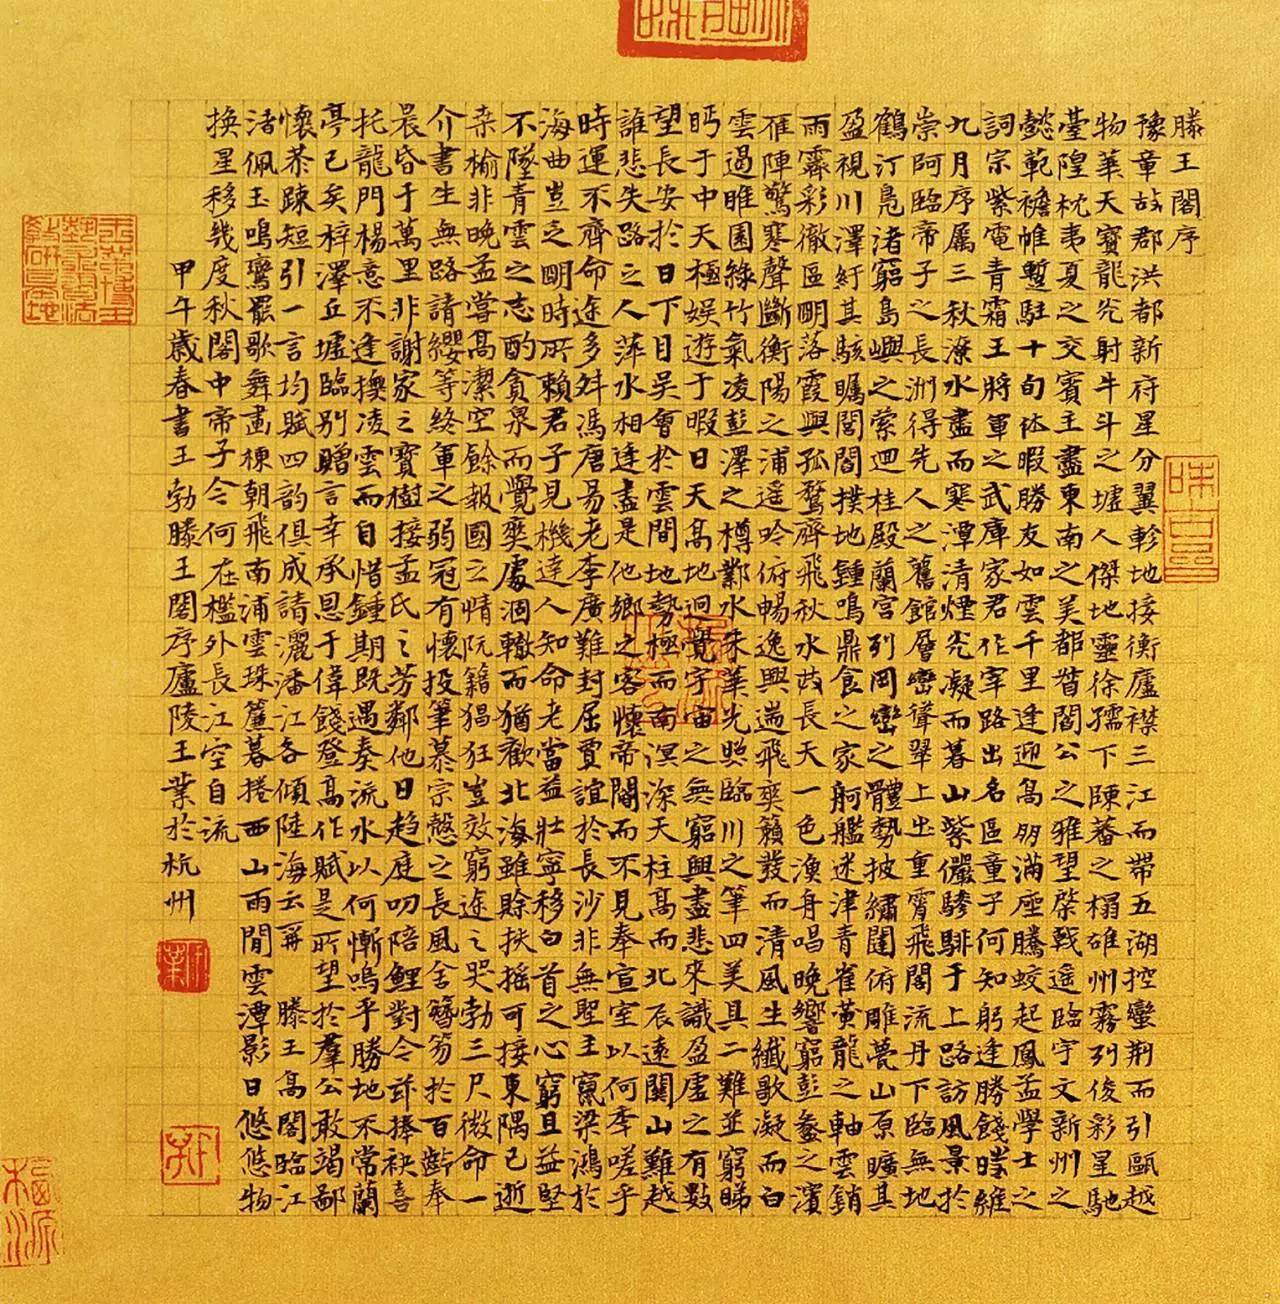 滕王閣序
豫章故郡洪都新府星分翼軫地接衡廬襟三江而帶五湖控蠻荊而引甌越
物華天寶龍光射牛斗之墟人傑地靈徐孺下陳蕃之榻雄州霧列俊彩星馳
臺隍枕夷夏之交賓主盡東南之美都督閻公之雅望棨戟遙臨宇文新州之
懿範襜帷暫駐十旬休暇勝友如雲千里逢迎高朋滿座騰蛟起鳳孟學士之
詞宗紫電青霜王將軍之武庫家君作宰路出名區童子何知躬逢勝餞時維
九月序屬三秋潦水盡而寒潭清煙光凝而暮山紫儼驂騑于上路訪風景於
崇阿臨帝子之長洲得先人之舊館層巒聳翠上出重霄飛閣流丹下臨無地
鶴汀鳧渚窮島嶼之縈迴桂殿蘭宮列岡巒之體勢披繡闥俯雕甍山原曠其
盈視川澤紆其駭矚閭閻撲地鍾鳴鼎食之家舸艦迷津青雀黃龍之軸雲銷
雨霽彩徹區明落霞與孤鶩齊飛秋水共長天一色漁舟唱晚響窮彭蠡之濱
雁陣驚寒聲斷衡陽之浦遙吟俯暢逸興遄飛爽籟發而清風生纖歌凝而白
雲遏睢園綠竹氣凌彭澤之樽鄴水朱華光照臨川之筆四美具二難並窮睇
眄于中天極娛遊于暇日天高地迥覺宇宙之無窮興盡悲來識盈虛之有數
望長安於日下目吳會於雲間地勢極而南溟深天柱高而北辰遠關山難越
誰悲失路之人萍水相逢盡是他鄉之客懷帝閽而不見奉宣室以何年嗟乎
時運不齊命途多舛馮唐易老李廣難封屈賈誼於長沙非無聖主竄梁鴻於
海曲豈乏明時所賴君子見機達人知命老當益壯寧移白首之心窮且益堅
不墜青雲之志酌貪泉而覺爽處涸轍而猶歡北海雖賒扶搖可接東隅已逝
桑榆非晚孟嘗高潔空餘報國之情阮籍猖狂豈效窮途之哭勃三尺微命一
介書生無路請纓等終軍之弱冠有懷投筆慕宗愨之長風舍簪笏於百齡奉
晨昏于萬里非謝家之寶樹接孟氏之芳鄰他日趨庭叨陪鯉對今茲捧袂喜
托龍門楊意不逢撫凌雲而自惜鍾期既遇奏流水以何慚嗚乎勝地不常蘭
亭已矣梓澤丘墟臨別贈言幸承恩于偉餞登高作賦是所望於羣公敢竭鄙
懷恭疎短引一言均賦四韵俱成請灑潘江各傾陸海云爾 滕王高閣臨江
渚佩玉鳴鸞罷歌舞畫棟朝飛南浦雲珠簾暮捲西山雨閒雲潭影日悠悠物
換星移幾度秋閣中帝子今何在檻外長江空自流
甲午歲春書王勃滕王閣序廬陵王業於杭州